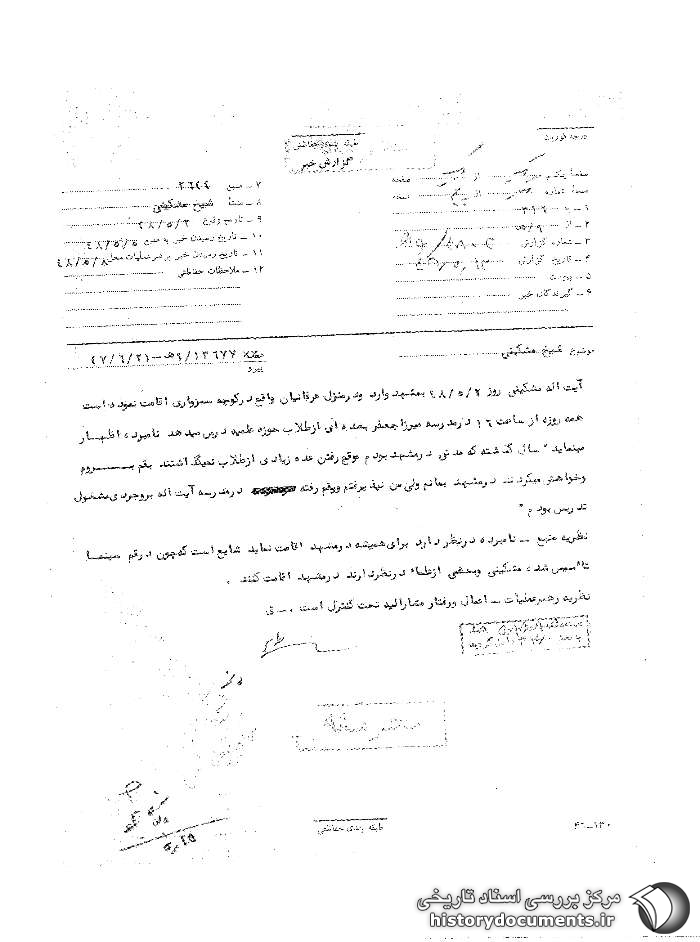 درجه فوریت
طبقه بندی حفاظتی
گزارش خبر
صفحه یکم
از
صفحه
نسخه شماره
از
نسخه
۱ – به ۳۱۲
۲ – از
۳ – شماره گزارش
۴ – تاریخ گزارش
۵ – پیوست
۶ – گیرندگان خبر
۷ – منبع ۲۶۴۴
۸ – منشأ شیخ مشکینی
۹ – تاریخ وقوع ۴۸/۵/۲
۱۰ – تاریخ رسیدن خبر به منبع ۴۸/۵/۵
۱۱ – تاریخ رسیدن خبر به رهبر عملیات محل ۴۸/۵/۸
۱۲ – ملاحظات حفاظتی
موضوع شیخ مشکینی
عطف
پیرو
۹/۱۳۶۷۷ه‍ – ۴۷/۶/۲۱
آیت اله مشکینی روز ۴۸/۵/۲ بمشهد وارد ودرمنزل عرفانیان واقع درکوچه سبزواری اقامت نموده است
همه روزه از ساعت ۱۶ درمدرسه میرزاجعفر بعده ای ازطلاب حوزه علمیه درس میدهد نامبرده اظهار
مینماید " سال گذشته که مدتی درمشهد بودم موقع رفتن عده زیادی ازطلاب نمیگذاشتند بقم بروم
وخواهش میکردند درمشهد بمانم ولی من نپذیرفتم وبقم رفته درمدرسه آیت اله بروجردی مشغول
تدریس بودم "
نظریه منبع – نامبرده درنظر دارد برای همیشه درمشهد اقامت نماید شایع است که چون درقم سینما
تأسیس شده مشکینی وبعضی ازعلماء درنظردارند درمشهد اقامت کنند .
نظریه رهبرعملیات – اعمال ورفتار مشارالیه تحت کنترل است . – ی
طبقه بندی حفاظتی
۴۶–۱۳۰
مرکز بررسی اسناد تاریخی
historydocuments.ir